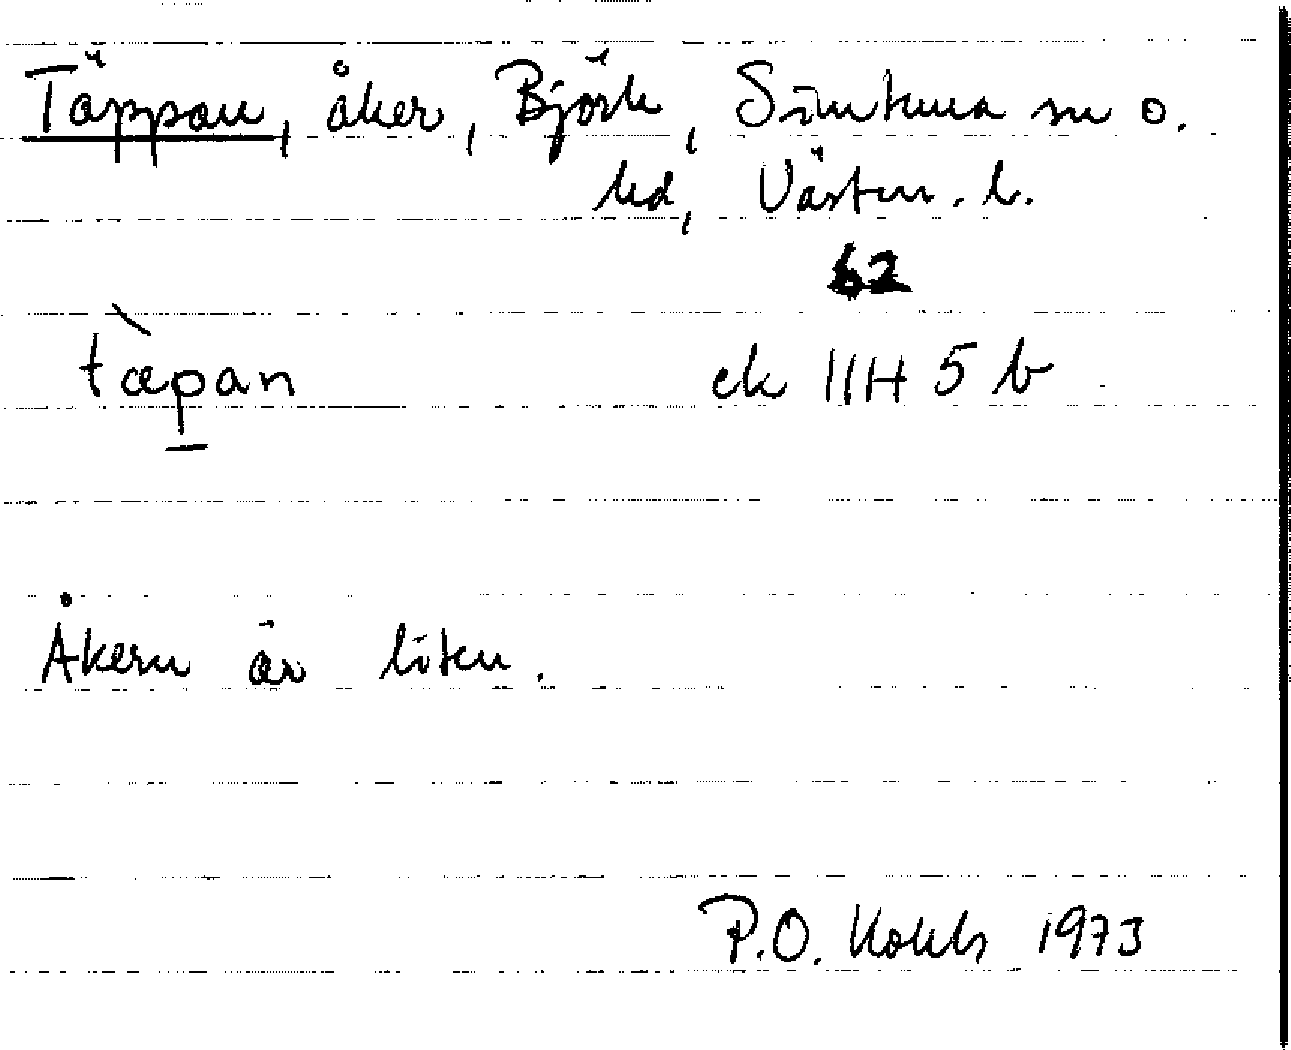 Täppan, åker, Björk, Simtuna sn o.
hd, Västm. l.
62
tæ̀pan ek 11H 5 b
Åkern är liten.
P.O. 1973